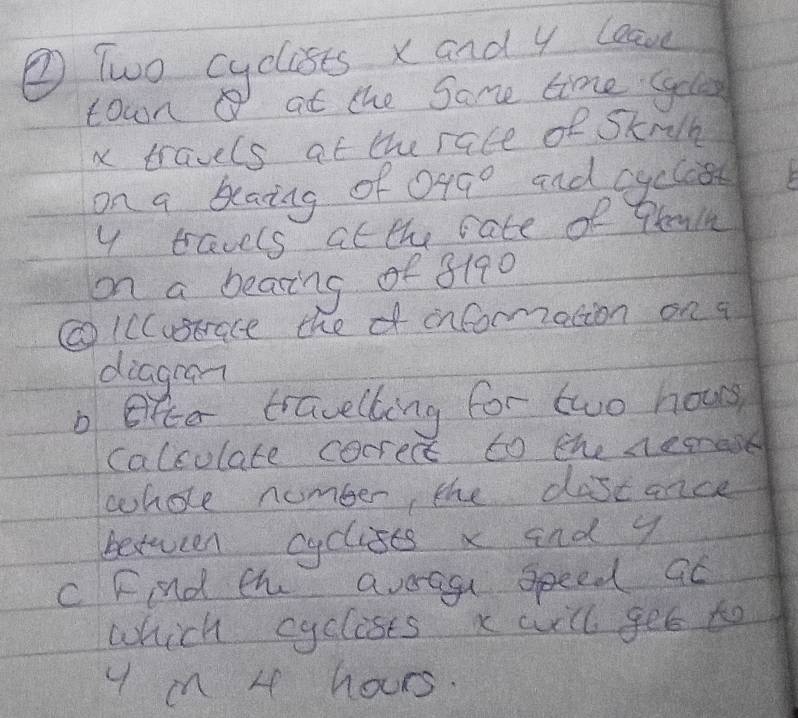 ② Two cyclists x and y leave
town Q at the same time. Cyclist
x travels at the rate of 5km/h
on a bearing of 049° and cyclist
y travels at the rate of 9km/h
on a bearing of 3190
ⓐ Illustrate the information on a
diagram
b After travelling for two hours,
calculate correct to the nearest
whole number, the distance
between cyclists x and y
c Find the average speed at
which cyclists x will get to
y in 4 hours.